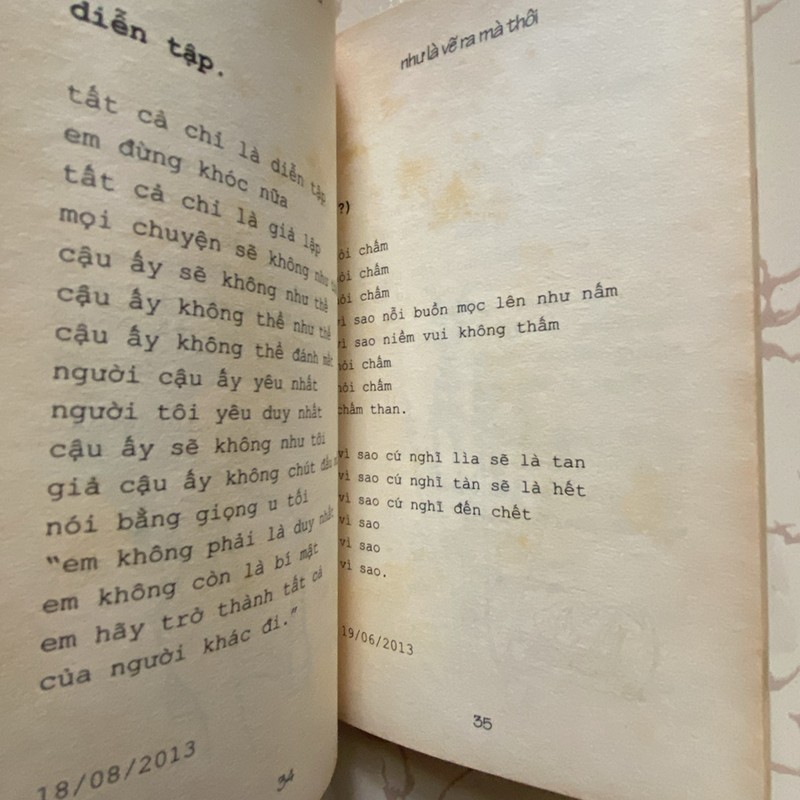 diễn tập.
tất cả chỉ là diễn tập
em đừng khóc nữa
tất cả chỉ là giả lập
mọi chuyện sẽ không như
cậu ấy sẽ không như thế
cậu ấy không thể như thế
cậu ấy không thể đánh mất
người cậu ấy yêu nhất
người tôi yêu duy nhất
cậu ấy sẽ không như tôi
giả cậu ấy không chút đấu
nói bằng giọng u tối
"em không phải là duy nhất
em không còn là bí mật
em hãy trở thành tất cả
của người khác đi."
18/08/2013
34
như là vẽ ra mà thôi
?)
chấm
chấm
chấm
vì sao nỗi buồn mọc lên như nấm
vì sao niềm vui không thấm
chấm
chấm
chấm than.
vì sao cứ nghĩ lìa sẽ là tan
vì sao cứ nghĩ tàn sẽ là hết
vì sao cứ nghĩ đến chết
vì sao
vì sao
vì sao.
19/06/2013
35